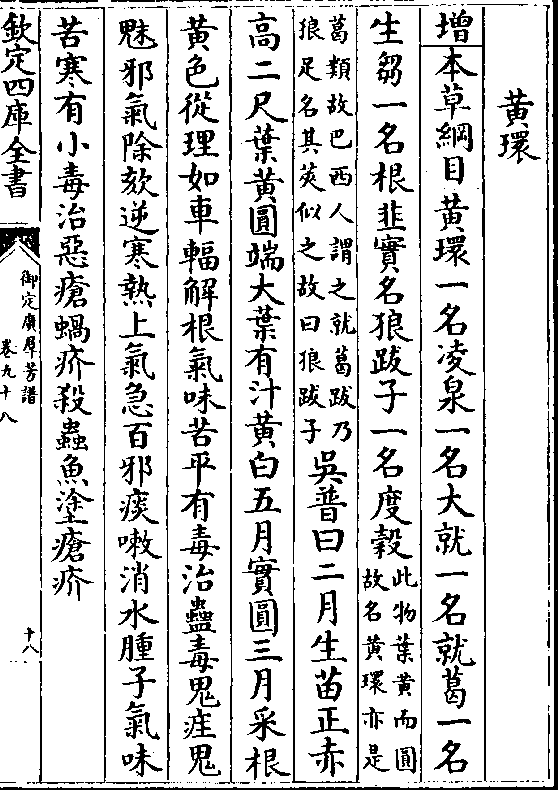 黄環
増本草綱目黄環一名凌泉一名大就一名就葛一名
生芻一名根韭實名狼跋子一名度榖此物葉黄而圓
故名黄環亦是
葛類故巴西人謂之就葛跋乃
狼足名其莢似之故曰狼跋子吳普曰二月生苗正赤
高二尺葉黄圓端大葉有汁黄白五月實圓三月采根
黄色從理如車輻解根氣味苦平有毒治蠱毒鬼疰鬼
魅邪氣除欬逆寒熱上氣急百邪痰嗽消水腫子氣味
苦寒有小毒治惡瘡蝸疥殺蟲魚塗瘡疥
欽定四庫全書
御定廣羣芳譜
卷九十八
十八